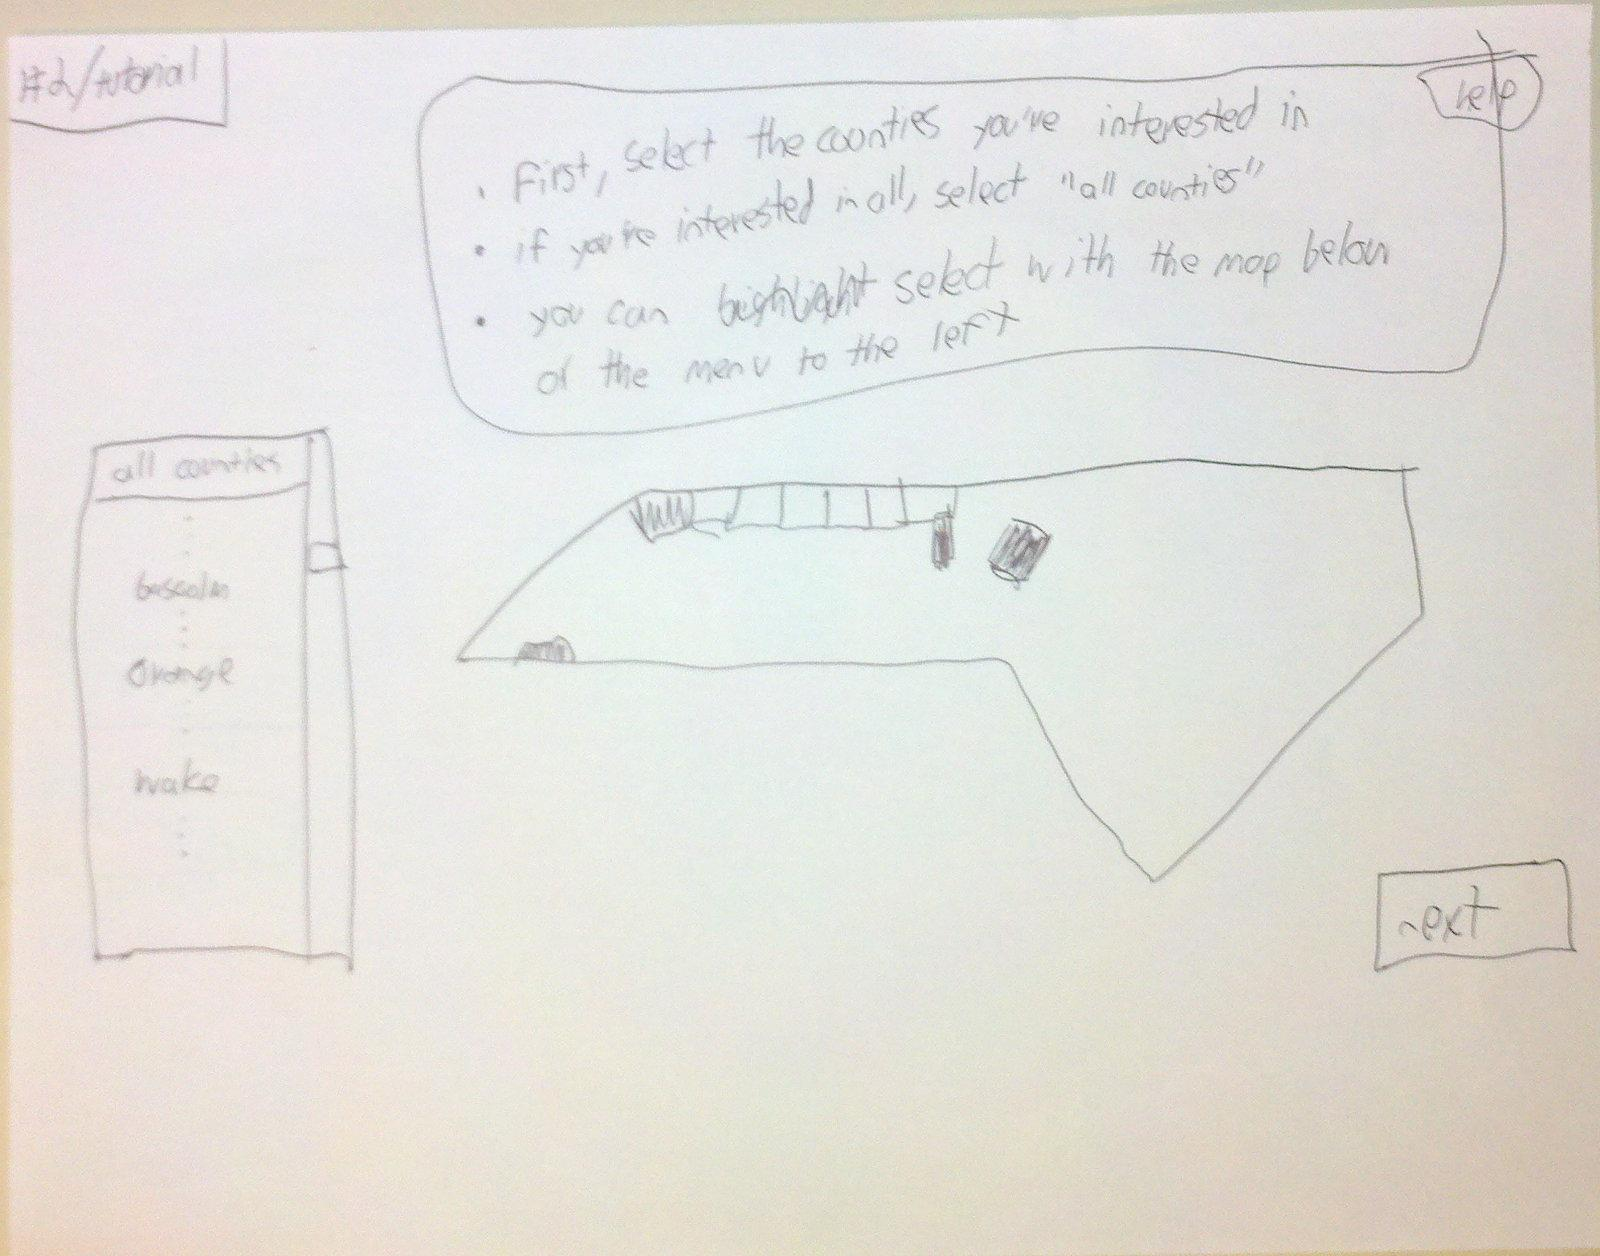 #2/tutorial
help
• First, select the counties you're interested in
• if you're interested in all, select "all counties"
• you can select with the map below
or the menu to the left
all counties
Orange
wake
next